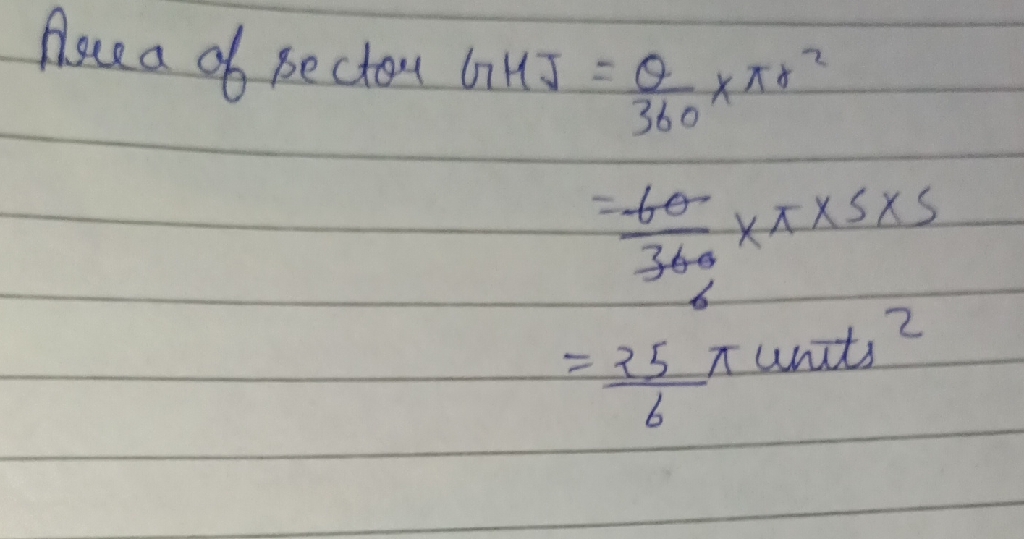 Area of sector GHJ = θ/360 × πr²
= 60/360 × π × 5 × 5
6
= 25/6 π units²